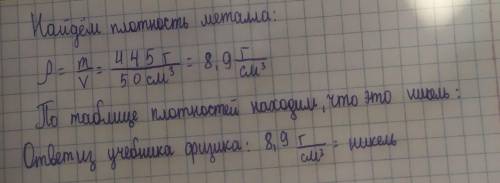 Найдём плотность металла:
ρ = m/V = 445 г/50 см³ = 8,9 г/см³
По таблице плотностей находим, что это никель:
Ответ из учебника физика: 8,9 г/см³ = никель